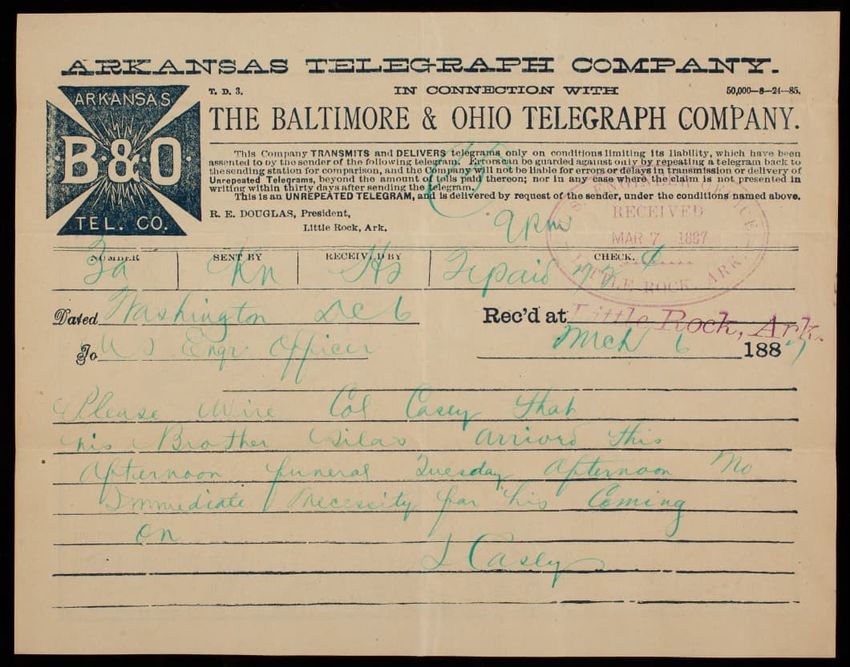 ARKANSAS TELEGRAPH COMPANY.
T. D. 3. IN CONNECTION WITH 50,000–8–21–85.
THE BALTIMORE & OHIO TELEGRAPH COMPANY.
ARKANSAS
B·&·O
TEL. CO.
This Company TRANSMITS and DELIVERS telegrams only on conditions limiting its liability, which have been
assented to by the sender of the following telegram. Errors can be guarded against only by repeating a telegram back to
the sending station for comparison, and the Company will not be liable for errors or delays in transmission or delivery of
Unrepeated Telegrams, beyond the amount of tolls paid thereon; nor in any case where the claim is not presented in
writing within thirty days after sending the telegram.
This is an UNREPEATED TELEGRAM, and is delivered by request of the sender, under the conditions named above.
R. E. DOUGLAS, President,
Little Rock, Ark.
RECEIVED
MAR 7 1887
LITTLE ROCK, ARK.
NUMBER SENT BY RECEIVED BY CHECK.
Dated Washington DC 6
Rec'd at Little Rock, Ark.
To U S Engr Officer
Mch 6 1887
Please Wire Col Casey that
his Brother Silas arrived this
Afternoon funeral Tuesday Afternoon No
Immediate Necessity for his Coming
on
Casey